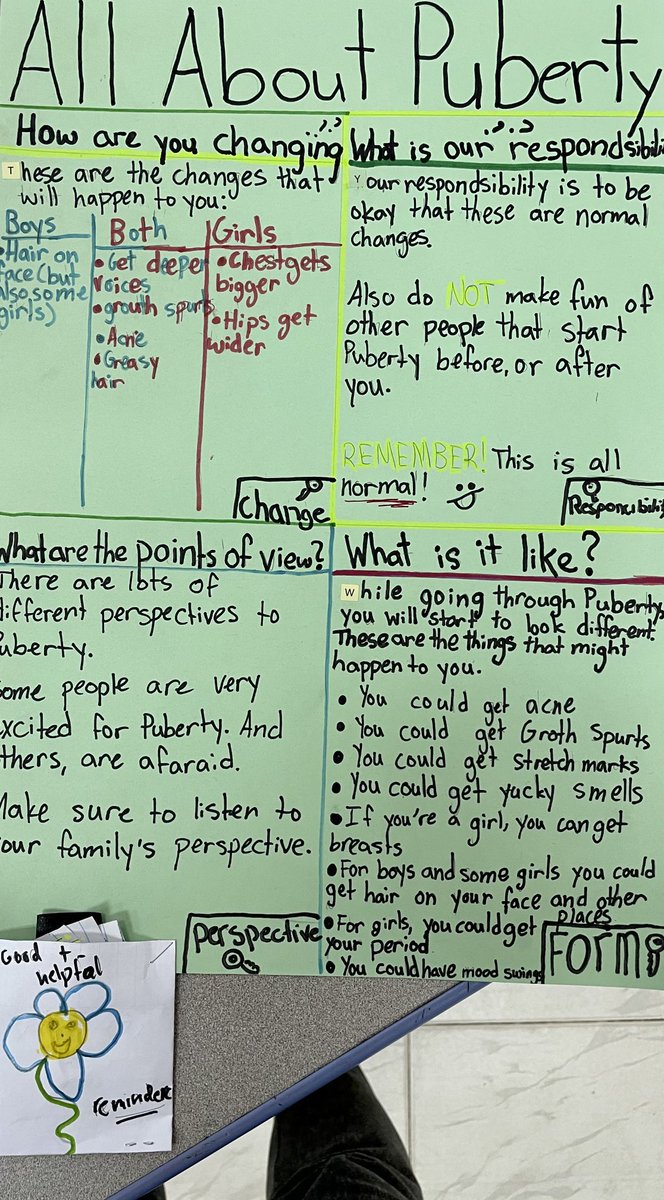 All About Puberty
How are you changing??
These are the changes that
will happen to you:
Boys
•Hair on
face(but
also, some
girls)
Both
•Get deeper
voices
•growth spurts
•Acne
•Greasy
hair
Girls
•Chest gets
bigger
•Hips get
wider
Change
What is our respondsibili
Your respondsibility is to be
okay that these are normal
changes.
Also do NOT make fun of
other people that start
Puberty before, or after
you.
REMEMBER! This is all
normal!
Responcibility
What are the points of view?
There are lots of
different perspectives to
Puberty.
Some people are very
excited for Puberty. And
others, are afaraid.
Make sure to listen to
your family's perspective.
perspective
What is it like?
While going through Puberty,
you will start to look different.
These are the things that might
happen to you.
• You could get acne
• You could get Groth Spurts
• You could get stretch marks
• You could get yucky smells
• If you're a girl, you can get
breasts
• For boys and some girls you could
get hair on your face and other
places
• For girls, you could get
your period
• You could have mood swings
FORM
Good +
helpful
reminders